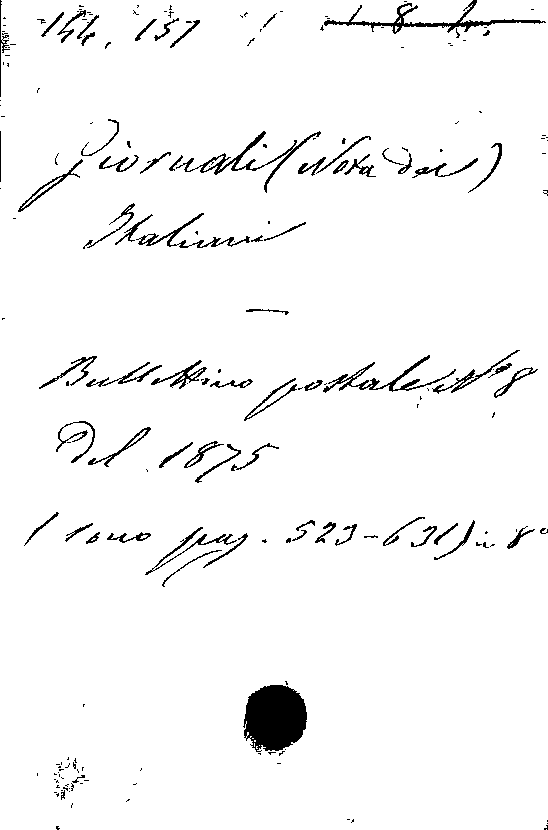 144. 157
Giornali (Nota dei)
Italiani
—
Bullettino postale N° 8
del 1875
(sono pag. 523-631) in 8°